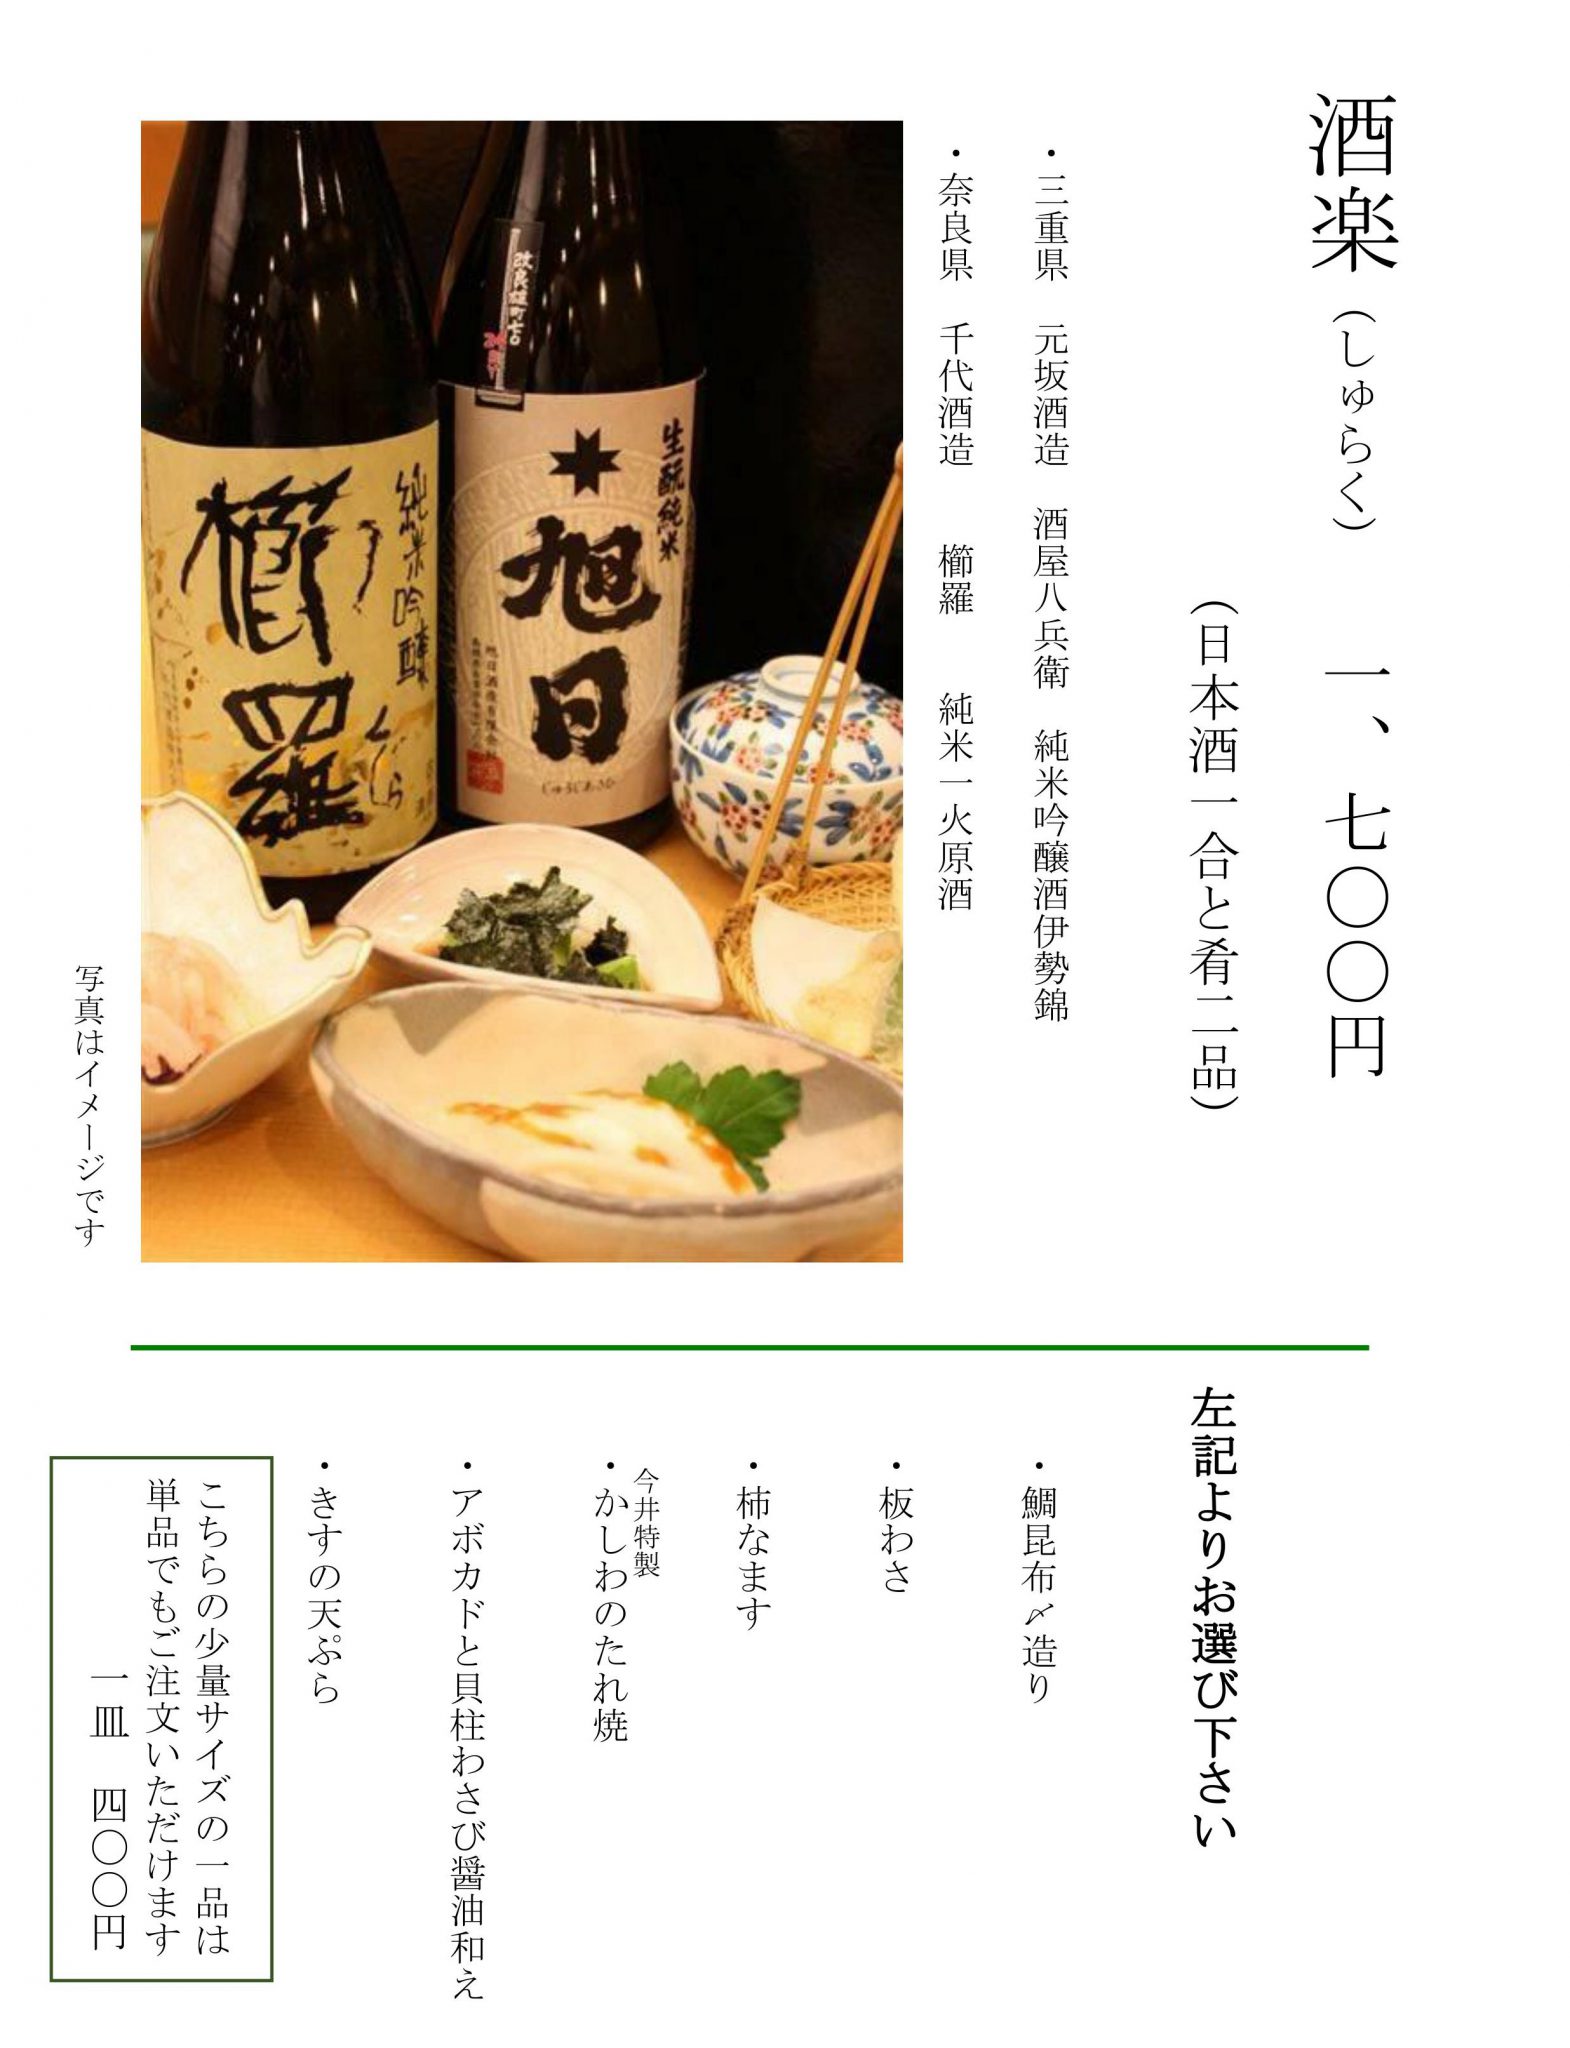 酒楽（しゅらく） 一、七〇〇円
（日本酒一合と肴二品）
・三重県 元坂酒造 酒屋八兵衛 純米吟醸酒伊勢錦
・奈良県 千代酒造 櫛羅 純米一火原酒
生酛純米
旭日
じゅうじあさひ
純米吟醸
櫛羅
くじら
写真はイメージです
左記よりお選び下さい
・鯛昆布〆造り
・板わさ
・柿なます
今井特製
・かしわのたれ焼
・アボカドと貝柱わさび醤油和え
・きすの天ぷら
こちらの少量サイズの一品は
単品でもご注文いただけます
一皿 四〇〇円